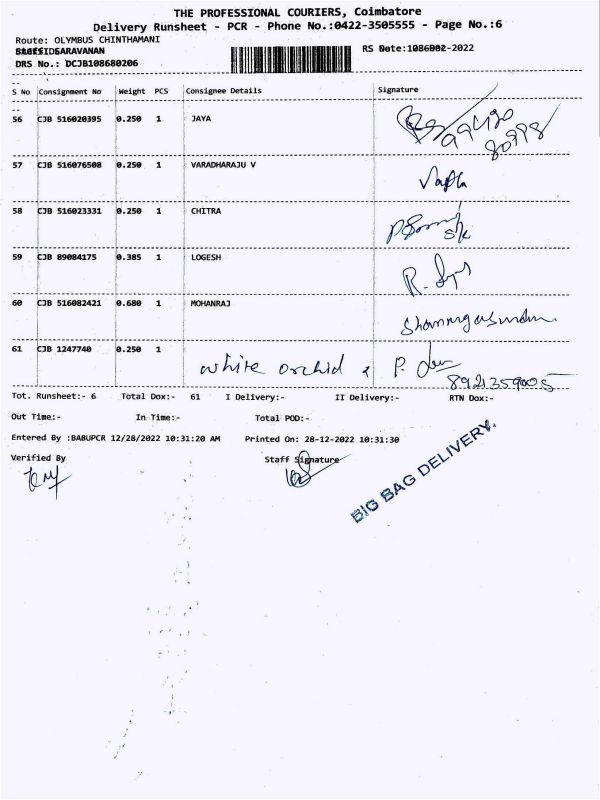 THE PROFESSIONAL COURIERS, Coimbatore
Delivery Runsheet - PCR - Phone No.:0422-3505555 - Page No.:6
Route: OLYMBUS CHINTHAMANI
SARAVANAN
RS Date: -2022
DRS No.: DCJB108680206
S No Consignment No Weight PCS Consignee Details Signature
56 CJB 516020395 0.250 1 JAYA
57 CJB 516076508 0.250 1 VARADHARAJU V
58 CJB 516023331 0.250 1 CHITRA
59 CJB 89084175 0.385 1 LOGESH
60 CJB 516082421 0.680 1 MOHANRAJ
61 CJB 1247740 0.250 1
white orchid
Tot. Runsheet:- 6 Total Dox:- 61 I Delivery:- II Delivery:- RTN Dox:-
Out Time:- In Time:- Total POD:-
Entered By :BABUPCR 12/28/2022 10:31:20 AM Printed On: 28-12-2022 10:31:30
Verified By Staff Signature
BIG BAG DELIVERY.